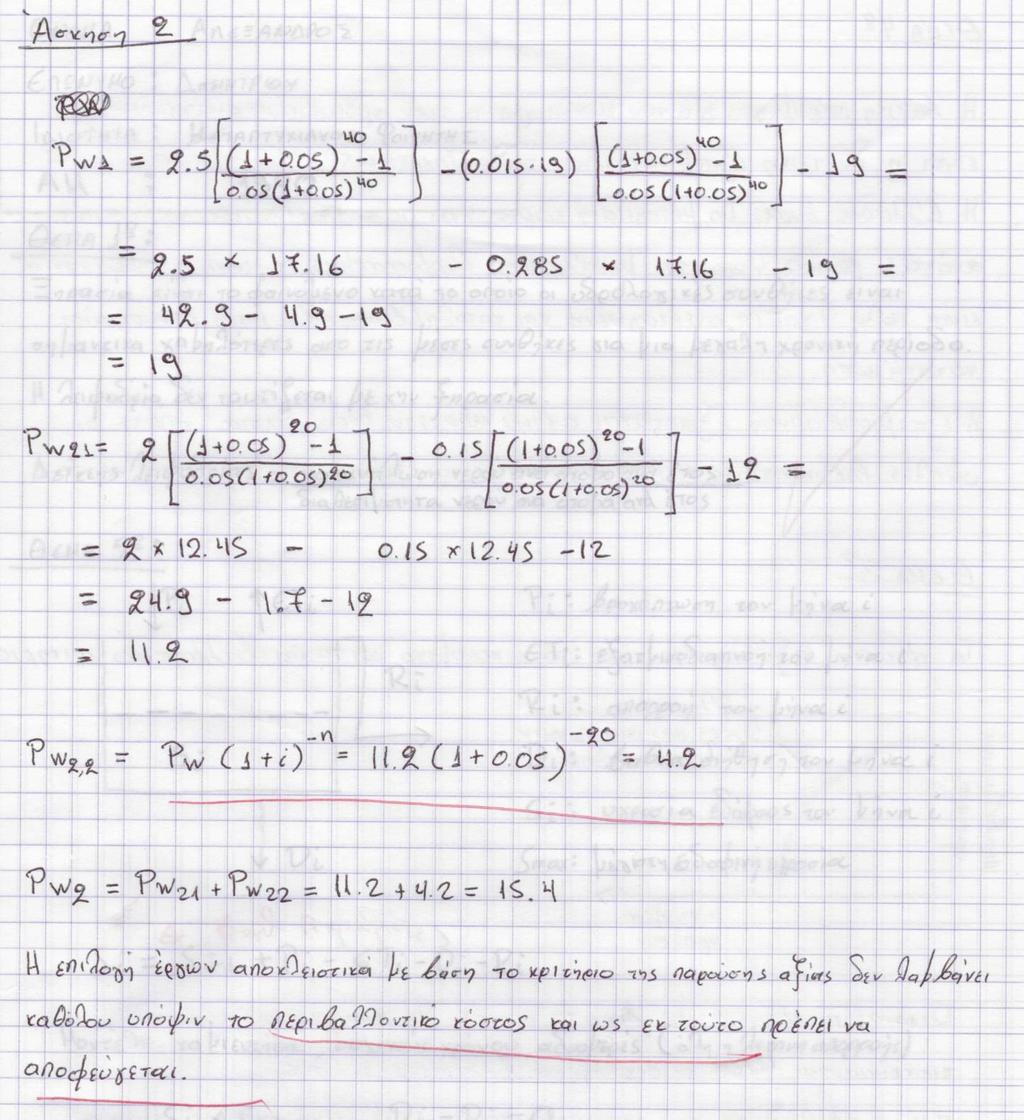 Άσκηση 2
PW1 = 2.5 [ (1+0.05)^40 - 1 / 0.05(1+0.05)^40 ] - (0.015·19) [ (1+0.05)^40 - 1 / 0.05(1+0.05)^40 ] - 19 =
= 2.5 × 17.16 - 0.285 × 17.16 - 19 =
= 42.9 - 4.9 - 19
= 19
PW21 = 2 [ (1+0.05)^20 - 1 / 0.05(1+0.05)^20 ] - 0.15 [ (1+0.05)^20 - 1 / 0.05(1+0.05)^20 ] - 12 =
= 2 × 12.45 - 0.15 × 12.45 - 12
= 24.9 - 1.7 - 12
= 11.2
PW2,2 = PW (1+i)^-n = 11.2 (1+0.05)^-20 = 4.2
PW2 = PW21 + PW22 = 11.2 + 4.2 = 15.4
Η επιλογή έργων αποκλειστικά με βάση το κριτήριο της παρούσης αξίας δεν λαμβάνει
καθόλου υπόψιν το περιβαλλοντικό κόστος και ως εκ τούτο πρέπει να
αποφεύγεται.